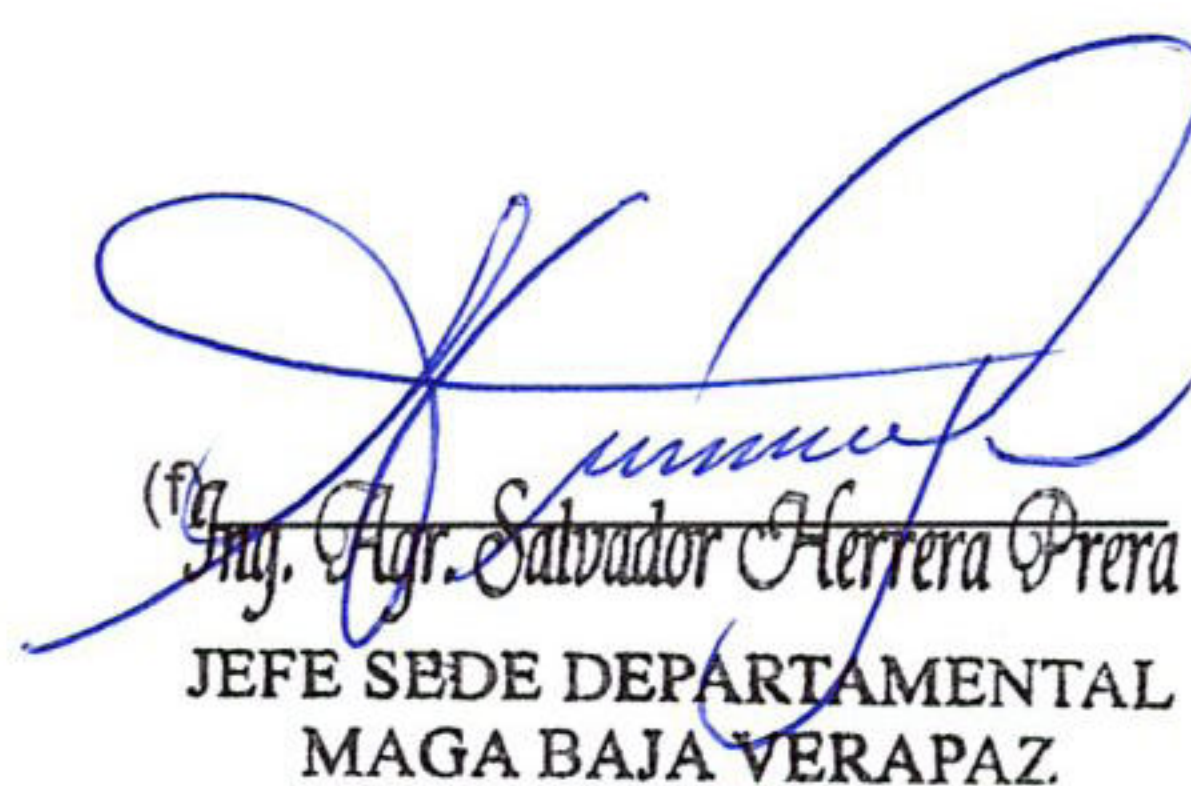 (f)
Ing. Agr. Salvador Herrera Prera
JEFE SEDE DEPARTAMENTAL
MAGA BAJA VERAPAZ.